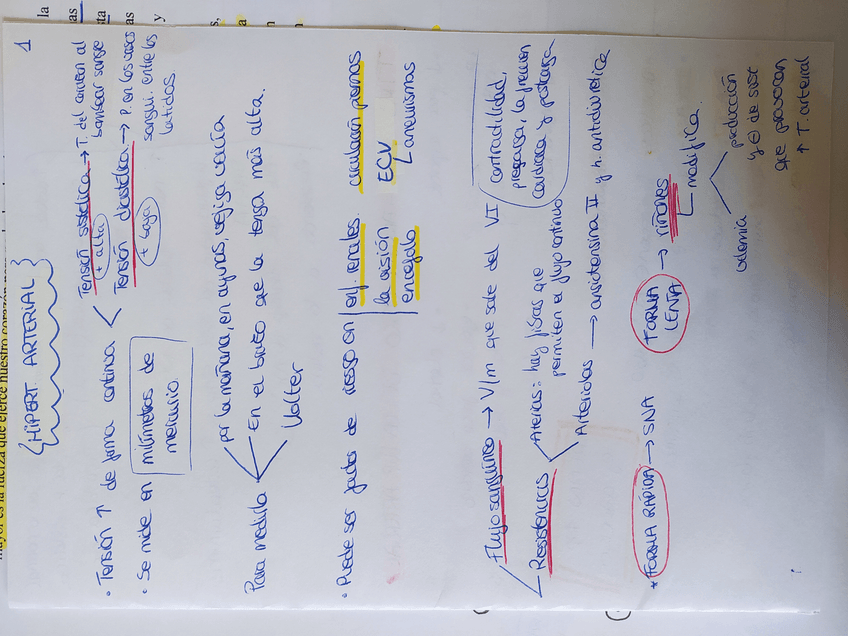 1
{HIPERT ARTERIAL}
· Tensión ↑ de forma continua
Tensión sistólica → T. del corazón al
bombear sangre
+ alta
Tensión diastólica → P. en los vasos
sangui. entre los
latidos.
+ baja
· Se mide en milímetros de
mercurio
Para medirla
por la mañana, en ayunas, vejiga vacía
En el brazo que la tenga más alta.
Holter
· Puede ser factor de riesgo en
enf. renales.
la visión
encéfalo
circulación piernas
ECV
aneurismas
Flujo sanguíneo → V/m que sale del VI
contractilidad,
precarga, la frecuen
cardiaca y postcarga
Resistencias
Arterias: hay fibras que
permiten el flujo continuo
Arteriolas → angiotensina II y h. antidiurética
* FORMA RÁPIDA → SNA
FORMA
LENTA
→ riñones
modifica.
volemia
producción
y ⊖ de sust
que provocan
↑ T. arterial
mayor es la fuerza que ejerce nuestro corazón
la